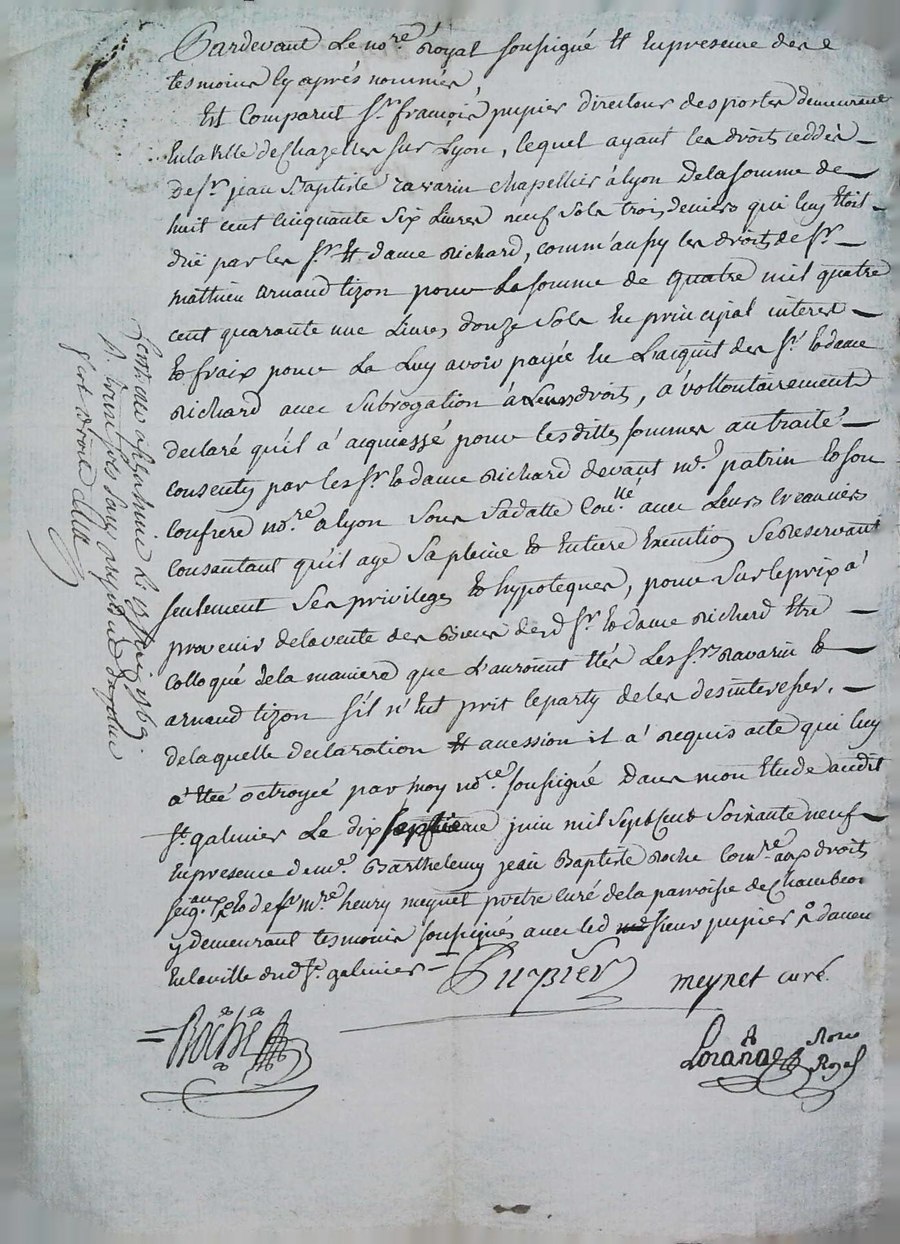 Pardevant Le no.re Royal soussigné Et En presence des
tesmoins Cy après nommés,
Est Comparut Sr. françois pupier directeur des postes demeurant
En la Ville de Chazelles sur Lyon, lequel ayant les droits ceddés
de Sr. jean Baptiste ravarin chapellier à lyon De la somme de
huit cent Cinquante Six Livres neuf Sols trois deniers qui luy Etoit
düe par les Srs. Et dame Richard, comm'aussy les droits de Sr.
mathieu arnaud tizon pour La somme de quatre mil quatre
cent quarante une Livre, douze Sols En principal interest
Et fraix pour La Luy avoir payée En L'acquit des Sr. Et dame
Richard avec Subrogation à Leurs droits, a vollontairement
declaré qu'il a acquiessé pour lesdittes sommes au traité
consenty par les Sr. Et dame Richard devant me. patrin Et son
Confrere no.re a lyon Sous Sa datte avec Leurs Creanciers
Consantant qu'il aye Sa pleine Et Entiere Execution Se Reservant
seulement Ses privileges Et hypoteques, pour Sur le prix à
provenir de la vente des Biens desd. Sr. Et dame Richard Etre
Colloqué de la maniere que L'auroient Etés Les Srs. Ravarin Et
arnaud tizon s'il n'Eut prit le party de les desinteresser.
de laquelle declaration Et acession il a requis acte qui luy
a Eté octroyé par moy no.re soussigné Dans mon Etude audit
St. galmier Le dix septieme juin mil Sept Cent Soixante neuf
En presence de me. Barthelemy jean Baptiste Roche Com.re aux droits
seig.aux Et de Sr. m.re henry meynet pretre curé de la parroisse de Chambeon
y demeurant tesmoins soussignés avec led. sieur pupier
En la ville dud. St. galmier
Pupier meynet curé.
Roche
Loranges No.re
Royal
a St galmier Le juin 1769.